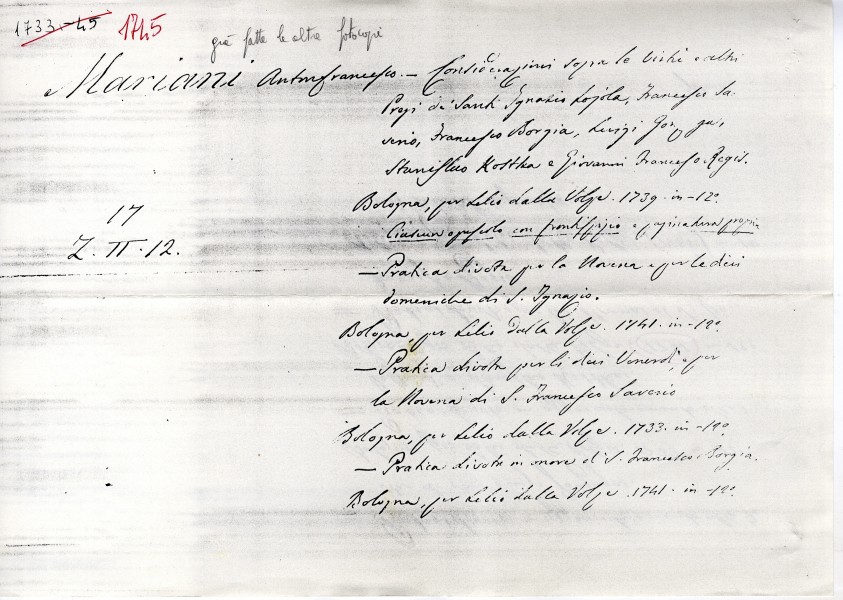 1733-45 1745
già fatte le altre fotocopie
Mariani Antonfrancesco. — Considerazioni sopra le Virtù e altri
Pregi de' Santi Ignazio Lojola, Francesco Sa-
verio, Francesco Borgia, Luigi Gonzaga,
Stanislao Kostka e Giovanni Francesco Regis.
Bologna, per Lelio dalla Volpe. 1739. in-12º.
Ciascun opuscolo con frontispizio e paginatura propria
17
Z. II. 12.
— Pratica divota per la Novena e per le dieci
domeniche di S. Ignazio.
Bologna, per Lelio Dalla Volpe. 1741. in-12º.
— Pratica divota per li dieci Venerdì, e per
la Novena di S. Francesco Saverio
Bologna, per Lelio dalla Volpe. 1733. in-12º.
— Pratica divota in onore di S. Francesco Borgia.
Bologna, per Lelio dalla Volpe. 1741. in-12º.